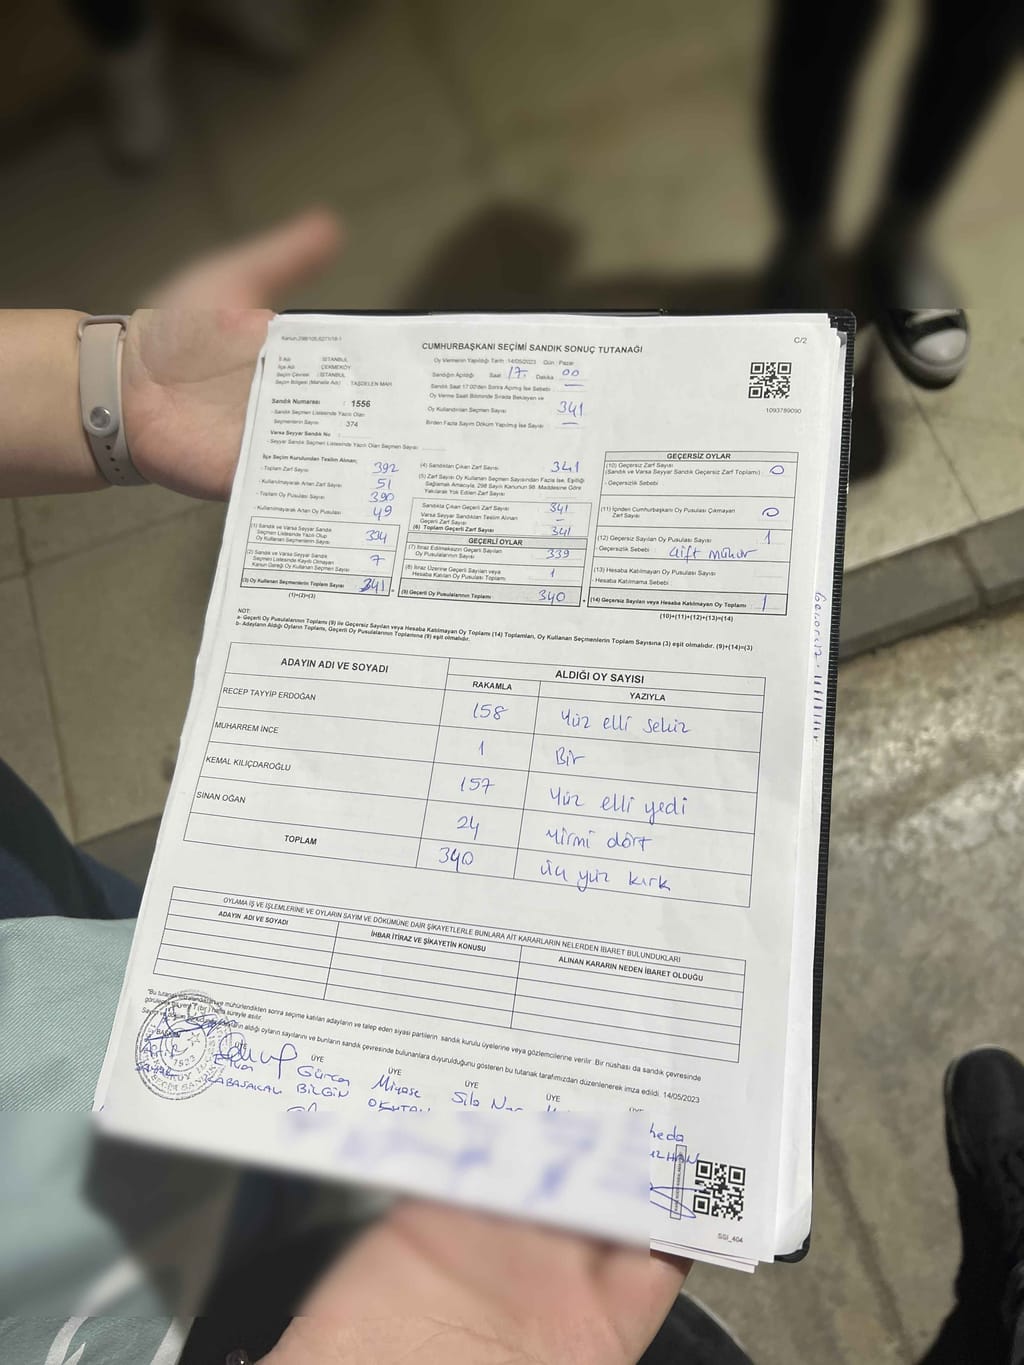 Kanun:298/105,6271/18-1
C/2
CUMHURBAŞKANI SEÇİMİ SANDIK SONUÇ TUTANAĞI
İl Adı : İSTANBUL
İlçe Adı : ÇEKMEKÖY
Seçim Çevresi : İSTANBUL
Seçim Bölgesi (Mahalle Adı) : TAŞDELEN MAH.
Sandık Numarası : 1556
- Sandık Seçmen Listesinde Yazılı Olan
Seçmenlerin Sayısı : 374
Varsa Seyyar Sandık No :
- Seyyar Sandık Seçmen Listesinde Yazılı Olan Seçmen Sayısı:
Oy Vermenin Yapıldığı Tarih : 14/05/2023 Gün : Pazar
Sandığın Açıldığı Saat 17. Dakika 00
Sandık Saat 17:00'den Sonra Açılmış İse Sebebi : —
Oy Verme Saat Bitiminde Sırada Bekleyen ve
Oy Kullandırılan Seçmen Sayısı 341
Birden Fazla Sayım Döküm Yapılmış İse Sayısı : —
1093789090
İlçe Seçim Kurulundan Teslim Alınan;
- Toplam Zarf Sayısı 392
- Kullanılmayarak Artan Zarf Sayısı 51
- Toplam Oy Pusulası Sayısı 390
- Kullanılmayarak Artan Oy Pusulası 49
(1) Sandık ve Varsa Seyyar Sandık
Seçmen Listesinde Yazılı Olup
Oy Kullanan Seçmenlerin Sayısı 334
(2) Sandık ve Varsa Seyyar Sandık
Seçmen Listesinde Kaydı Olmayan
Kanun Gereği Oy Kullanan Seçmen Sayısı 7
(3) Oy Kullanan Seçmenlerin Toplam Sayısı 341
(1)+(2)=(3)
(4) Sandıktan Çıkan Zarf Sayısı 341
(5) Zarf Sayısı Oy Kullanan Seçmen Sayısından Fazla İse, Eşitliği
Sağlamak Amacıyla, 298 Sayılı Kanunun 98. Maddesine Göre
Yakılarak Yok Edilen Zarf Sayısı
Sandıkta Çıkan Geçerli Zarf Sayısı 341
Varsa Seyyar Sandıktan Teslim Alınan
Geçerli Zarf Sayısı —
(6) Toplam Geçerli Zarf Sayısı 341
GEÇERLİ OYLAR
(7) İtiraz Edilmeksizin Geçerli Sayılan
Oy Pusulalarının Sayısı 339
(8) İtiraz Üzerine Geçerli Sayılan veya
Hesaba Katılan Oy Pusulası Toplamı 1
(9) Geçerli Oy Pusulalarının Toplamı 340
GEÇERSİZ OYLAR
(10) Geçersiz Zarf Sayısı
(Sandık ve Varsa Seyyar Sandık Geçersiz Zarf Toplamı) : 0
- Geçersizlik Sebebi :
(11) İçinden Cumhurbaşkanı Oy Pusulası Çıkmayan
Zarf Sayısı 0
(12) Geçersiz Sayılan Oy Pusulası Sayısı 1
- Geçersizlik Sebebi : Çift Mühür
(13) Hesaba Katılmayan Oy Pusulası Sayısı
- Hesaba Katılmama Sebebi :
(14) Geçersiz Sayılan veya Hesaba Katılmayan Oy Toplamı 1
(10)+(11)+(12)+(13)=(14)
NOT:
a- Geçerli Oy Pusulalarının Toplamı (9) ile Geçersiz Sayılan veya Hesaba Katılmayan Oy Toplamı (14) Toplamları, Oy Kullanan Seçmenlerin Toplam Sayısına (3) eşit olmalıdır. (9)+(14)=(3)
b- Adayların Aldığı Oyların Toplamı, Geçerli Oy Pusulalarının Toplamına (9) eşit olmalıdır.
ADAYIN ADI VE SOYADI
ALDIĞI OY SAYISI
RAKAMLA YAZIYLA
RECEP TAYYİP ERDOĞAN 158 Yüz elli sekiz
MUHARREM İNCE 1 Bir
KEMAL KILIÇDAROĞLU 157 Yüz elli yedi
SİNAN OĞAN 24 Yirmi dört
TOPLAM 340 Üç yüz kırk
OYLAMA İŞ VE İŞLEMLERİNE VE OYLARIN SAYIM VE DÖKÜMÜNE DAİR ŞİKAYETLERLE BUNLARA AİT KARARLARIN NELERDEN İBARET BULUNDUKLARI
ADAYIN ADI VE SOYADI
İHBAR İTİRAZ VE ŞİKAYETİN KONUSU
ALINAN KARARIN NEDEN İBARET OLDUĞU
"Bu tutanak imzalandıktan ve mühürlendikten sonra seçime katılan adayların ve talep eden siyasi partilerin sandık kurulu üyelerine veya gözlemcilerine verilir. Bir nüshası da sandık çevresinde
görülebilecek bir yere 1 (bir) hafta süreyle asılır.
aldığı oyların sayılarını ve bunların sandık çevresinde bulunanlara duyurulduğunu gösteren bu tutanak tarafımızdan düzenlenerek imza edildi. 14/05/2023
BAŞKAN ÜYE ÜYE ÜYE ÜYE ÜYE
Gürcan Miyase Sıla Nur
KABASAKAL BİLGİN OKUTAN
1923
SSI_404